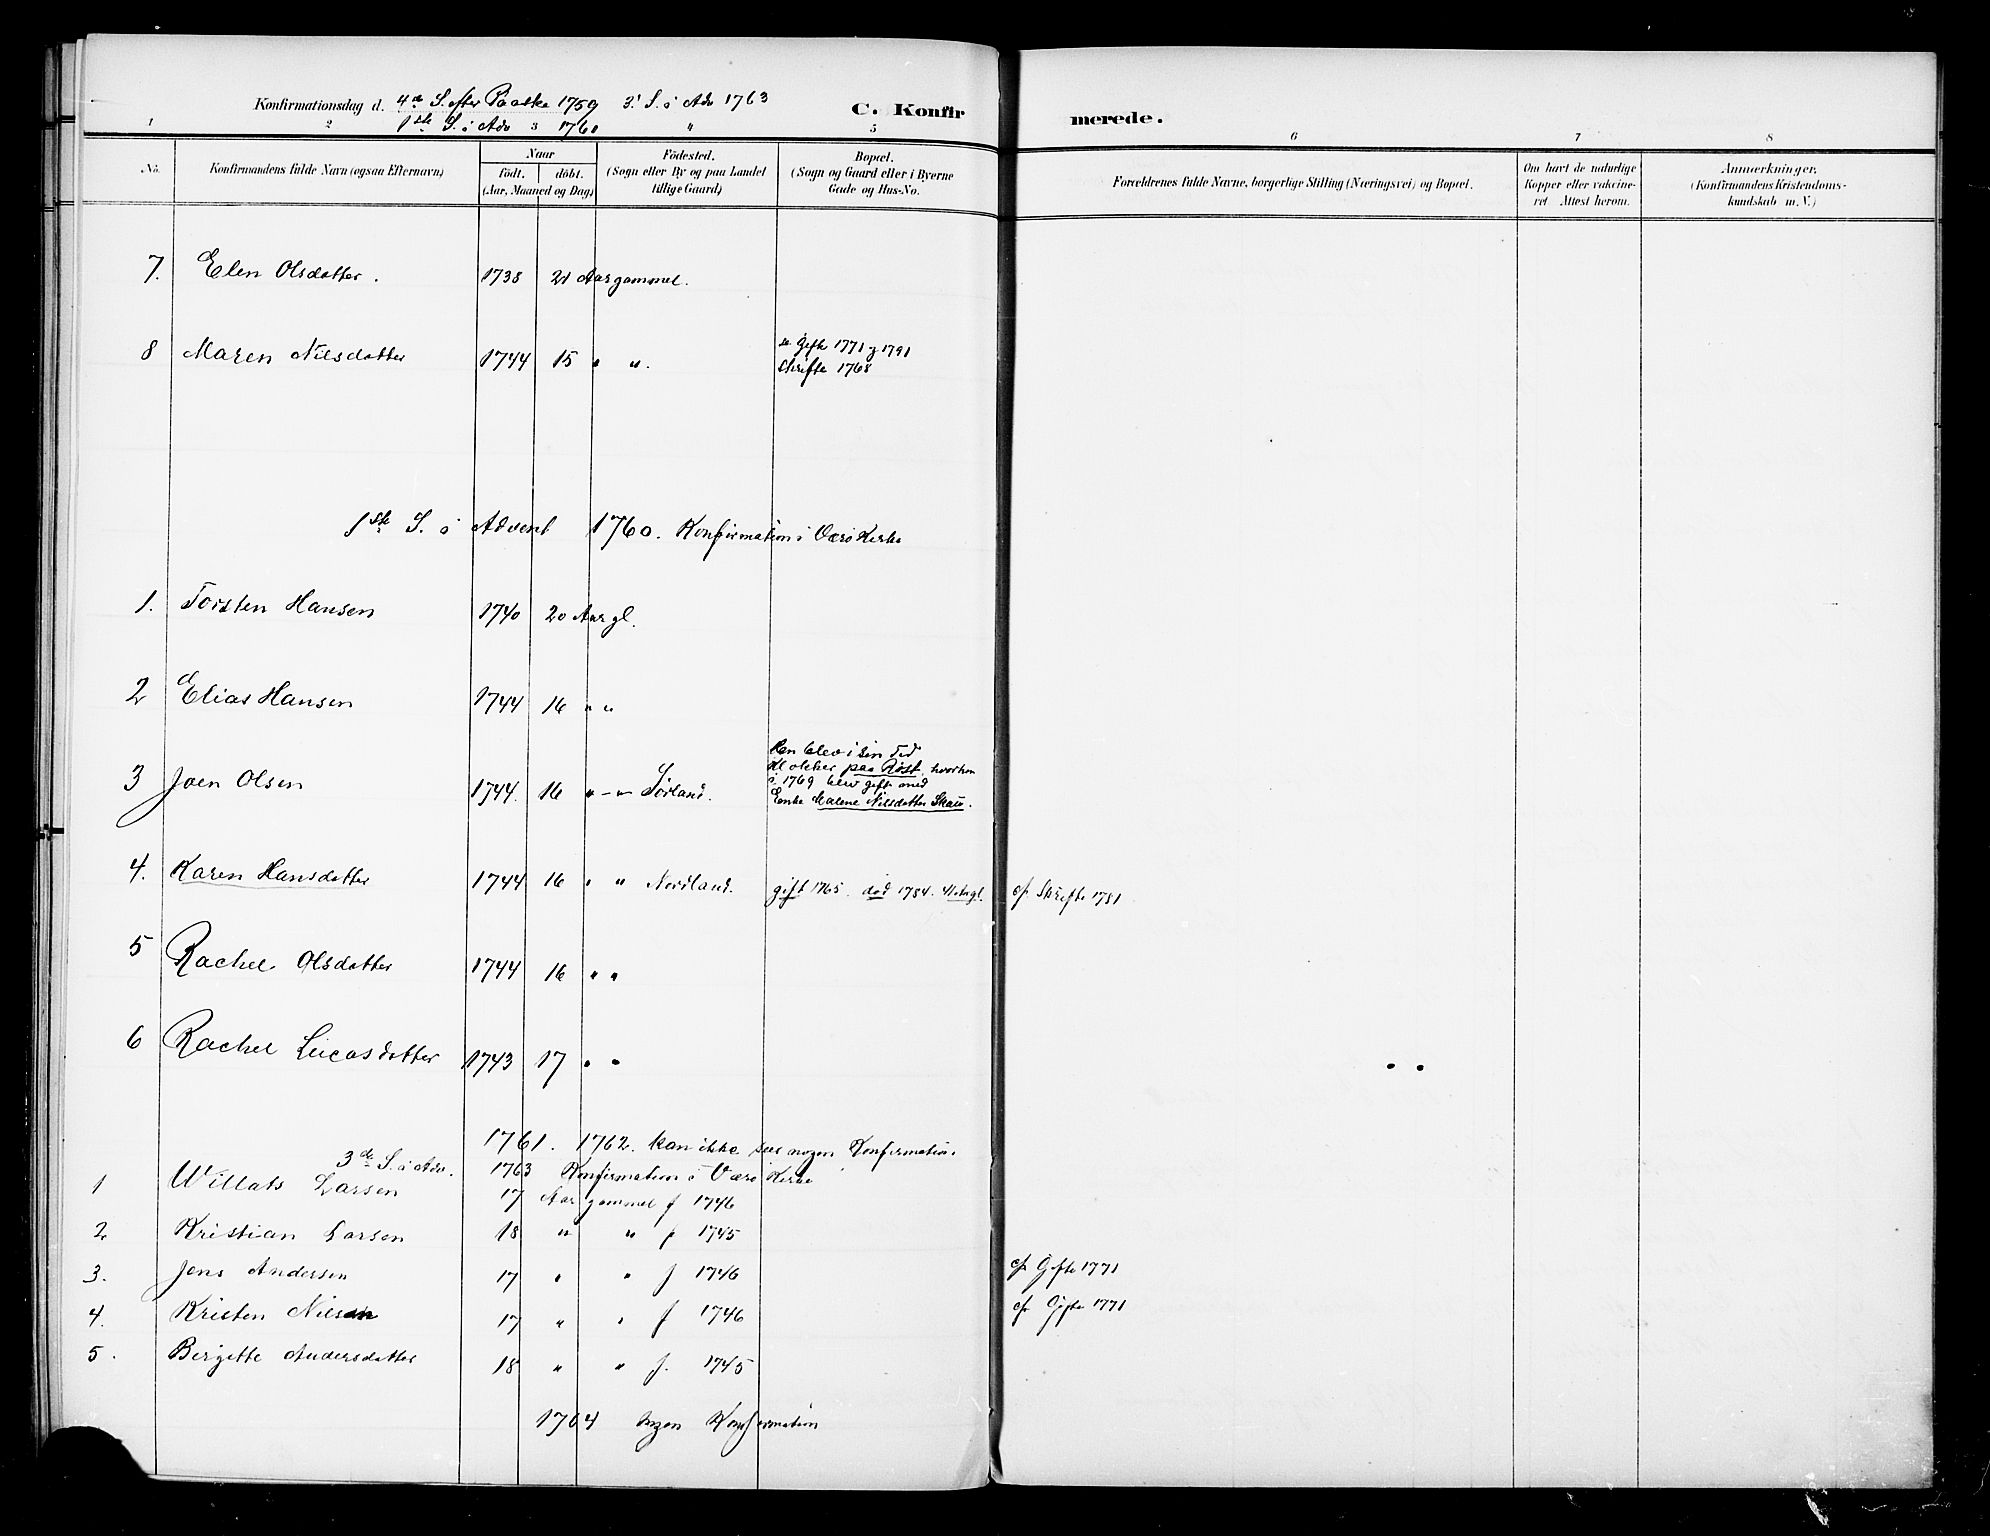 Konfirmationsdag d. 4de S. efter Paaske 1759 3' S. i Adv 1763
1ste S. i Adv 1760
C. Konfir merede.
1 2 3 4 5 6 7 8
No. Konfirmandens fulde Navn (ogsaa Efternavn)
Naar
født. døbt.
(Aar, Maaned og Dag)
Fødested.
(Sogn eller By og paa Landet
tillige Gaard)
Bopæl.
(Sogn og Gaard eller i Byerne
Gade og Hus-No.
Forældrenes fulde Navne, borgerlige Stilling (Næringsvei) og Bopæl.
Om havt de naturlige
Kopper eller vakcine-
ret. Attest herom.
Anmerkninger.
(Konfirmandens Kristendoms-
kundskab m. V.)
7. Elen Olsdatter. 1738 21 Aar gammel.
8 Maren Nilsdatter 1744 15 " ".
Gifte 1771 og 1791
Skrifte 1768
1ste S. i Advent 1760. Konfirmation i Værø Kirke
1. Torsten Hansen 1740 20 Aar gl.
2 Elias Hansen 1744 16 " "
3 Joen Olsen 1744. 16 " - " Sørland.
Han blev i sin Tid
Klokker paa Røst, hvor han
i 1769 blev gift med
Enke Malene Nilsdatter Skau.
4. Karen Hansdatter 1744 16 " " Nordland. gift 1765. død 1784. 41 Aar gl. cfr Skrifte 1781
5 Rachel Olsdatter 1744 16 " "
6 Rachel Lucasdatter 1743 17 " "
1761. 1762. kan ikke sees nogen Konfirmation.
3de S. i Adv. 1763 Konfirmation i Værø Kirke
1 Willats Larsen 17 Aar gammel f 1746
2 Kristian Larsen 18 " " f 1745
3. Jens Andersen 17 " " f 1746 cfr Gifte 1771
4. Kristen Nilsen 17 " " f 1746 cfr Gifte 1771
5. Birgitte Andersdatter 18 " " f. 1745
1764 ingen Konfirmation